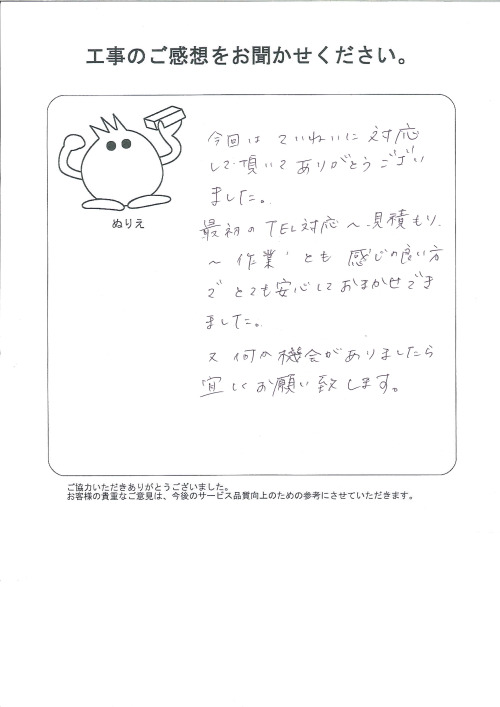 工事のご感想をお聞かせください。
今回は ていねいに 対応
して頂いて ありがとうござい
ました。
最初の TEL対応 〜 見積もり
〜 作業 とも 感じの良い方
で とても安心しておまかせできま
ました。
又 何かの機会がありましたら
宜しくお願い致します。
ぬりえ
ご協力いただきありがとうございました。
お客様の貴重なご意見は、今後のサービス品質向上のための参考にさせていただきます。